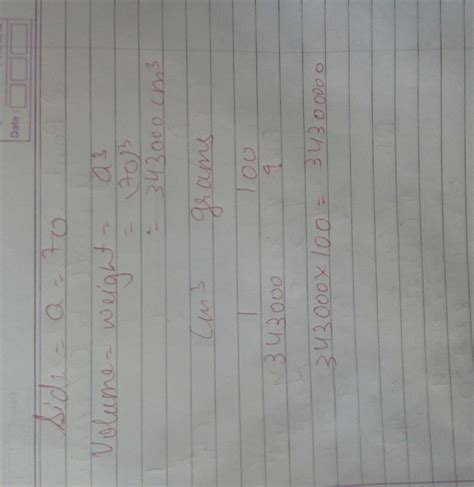 Date:
Side = a = 70
Volume = weight = a³
= (70)³
= 343000 cm³
cm³ grams
1 100
343000 ?
343000×100 = 34300000